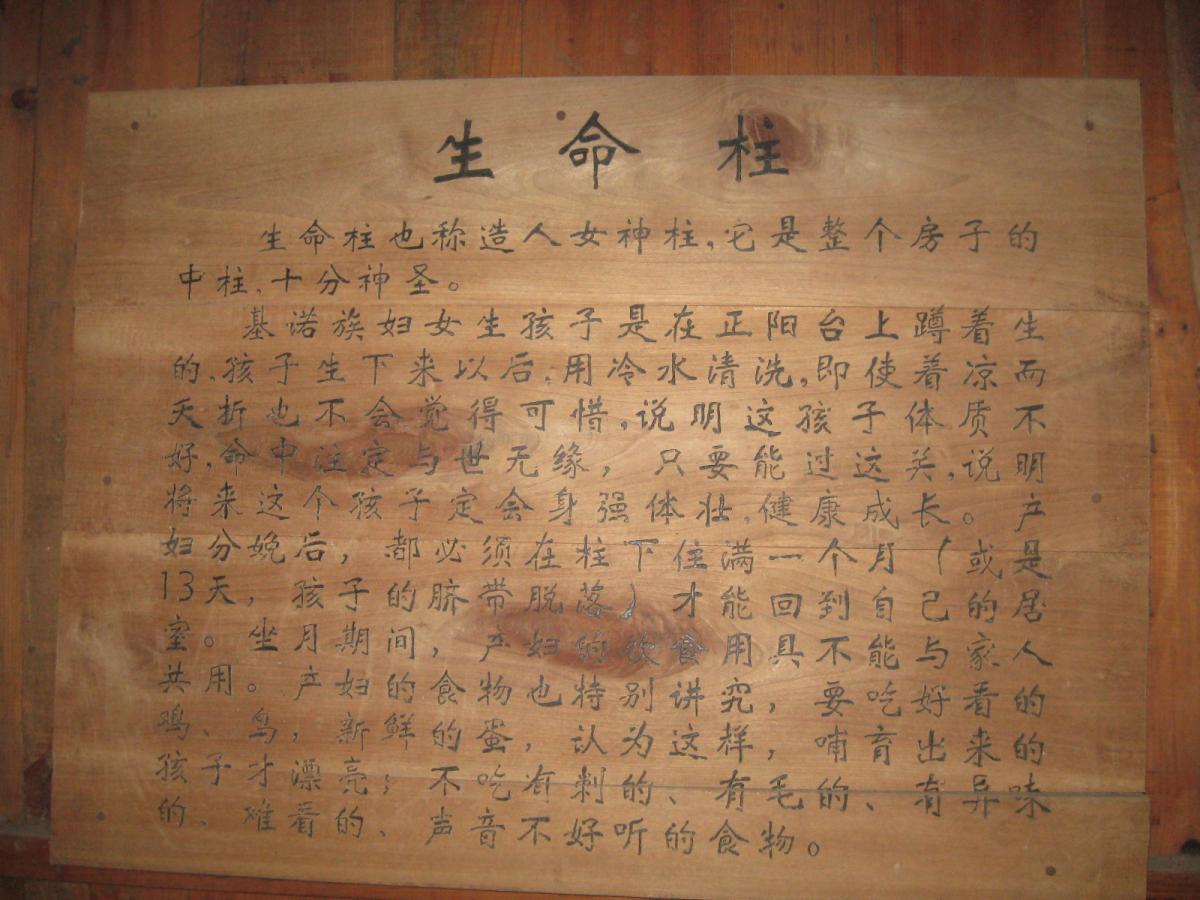 生命柱
生命柱也称造人女神柱,它是整个房子的
中柱、十分神圣。
基诺族妇女生孩子是在正阳台上蹲着生
的、孩子生下来以后、用冷水清洗,即使着凉而
夭折也不会觉得可惜,说明这孩子体质不
好,命中注定与世无缘，只要能过这关,说明
将来这个孩子定会身强体壮、健康成长。产
妇分娩后，都必须在柱下住满一个月（或是
13天，孩子的脐带脱落）才能回到自己的居
室。坐月期间，产妇的饮食用具不能与家人
共用。产妇的食物也特别讲究，要吃好看的
鸡、鸟，新鲜的蛋，认为这样，哺育出来的
孩子才漂亮；不吃有刺的、有毛的、有异味
的、难看的、声音不好听的食物。